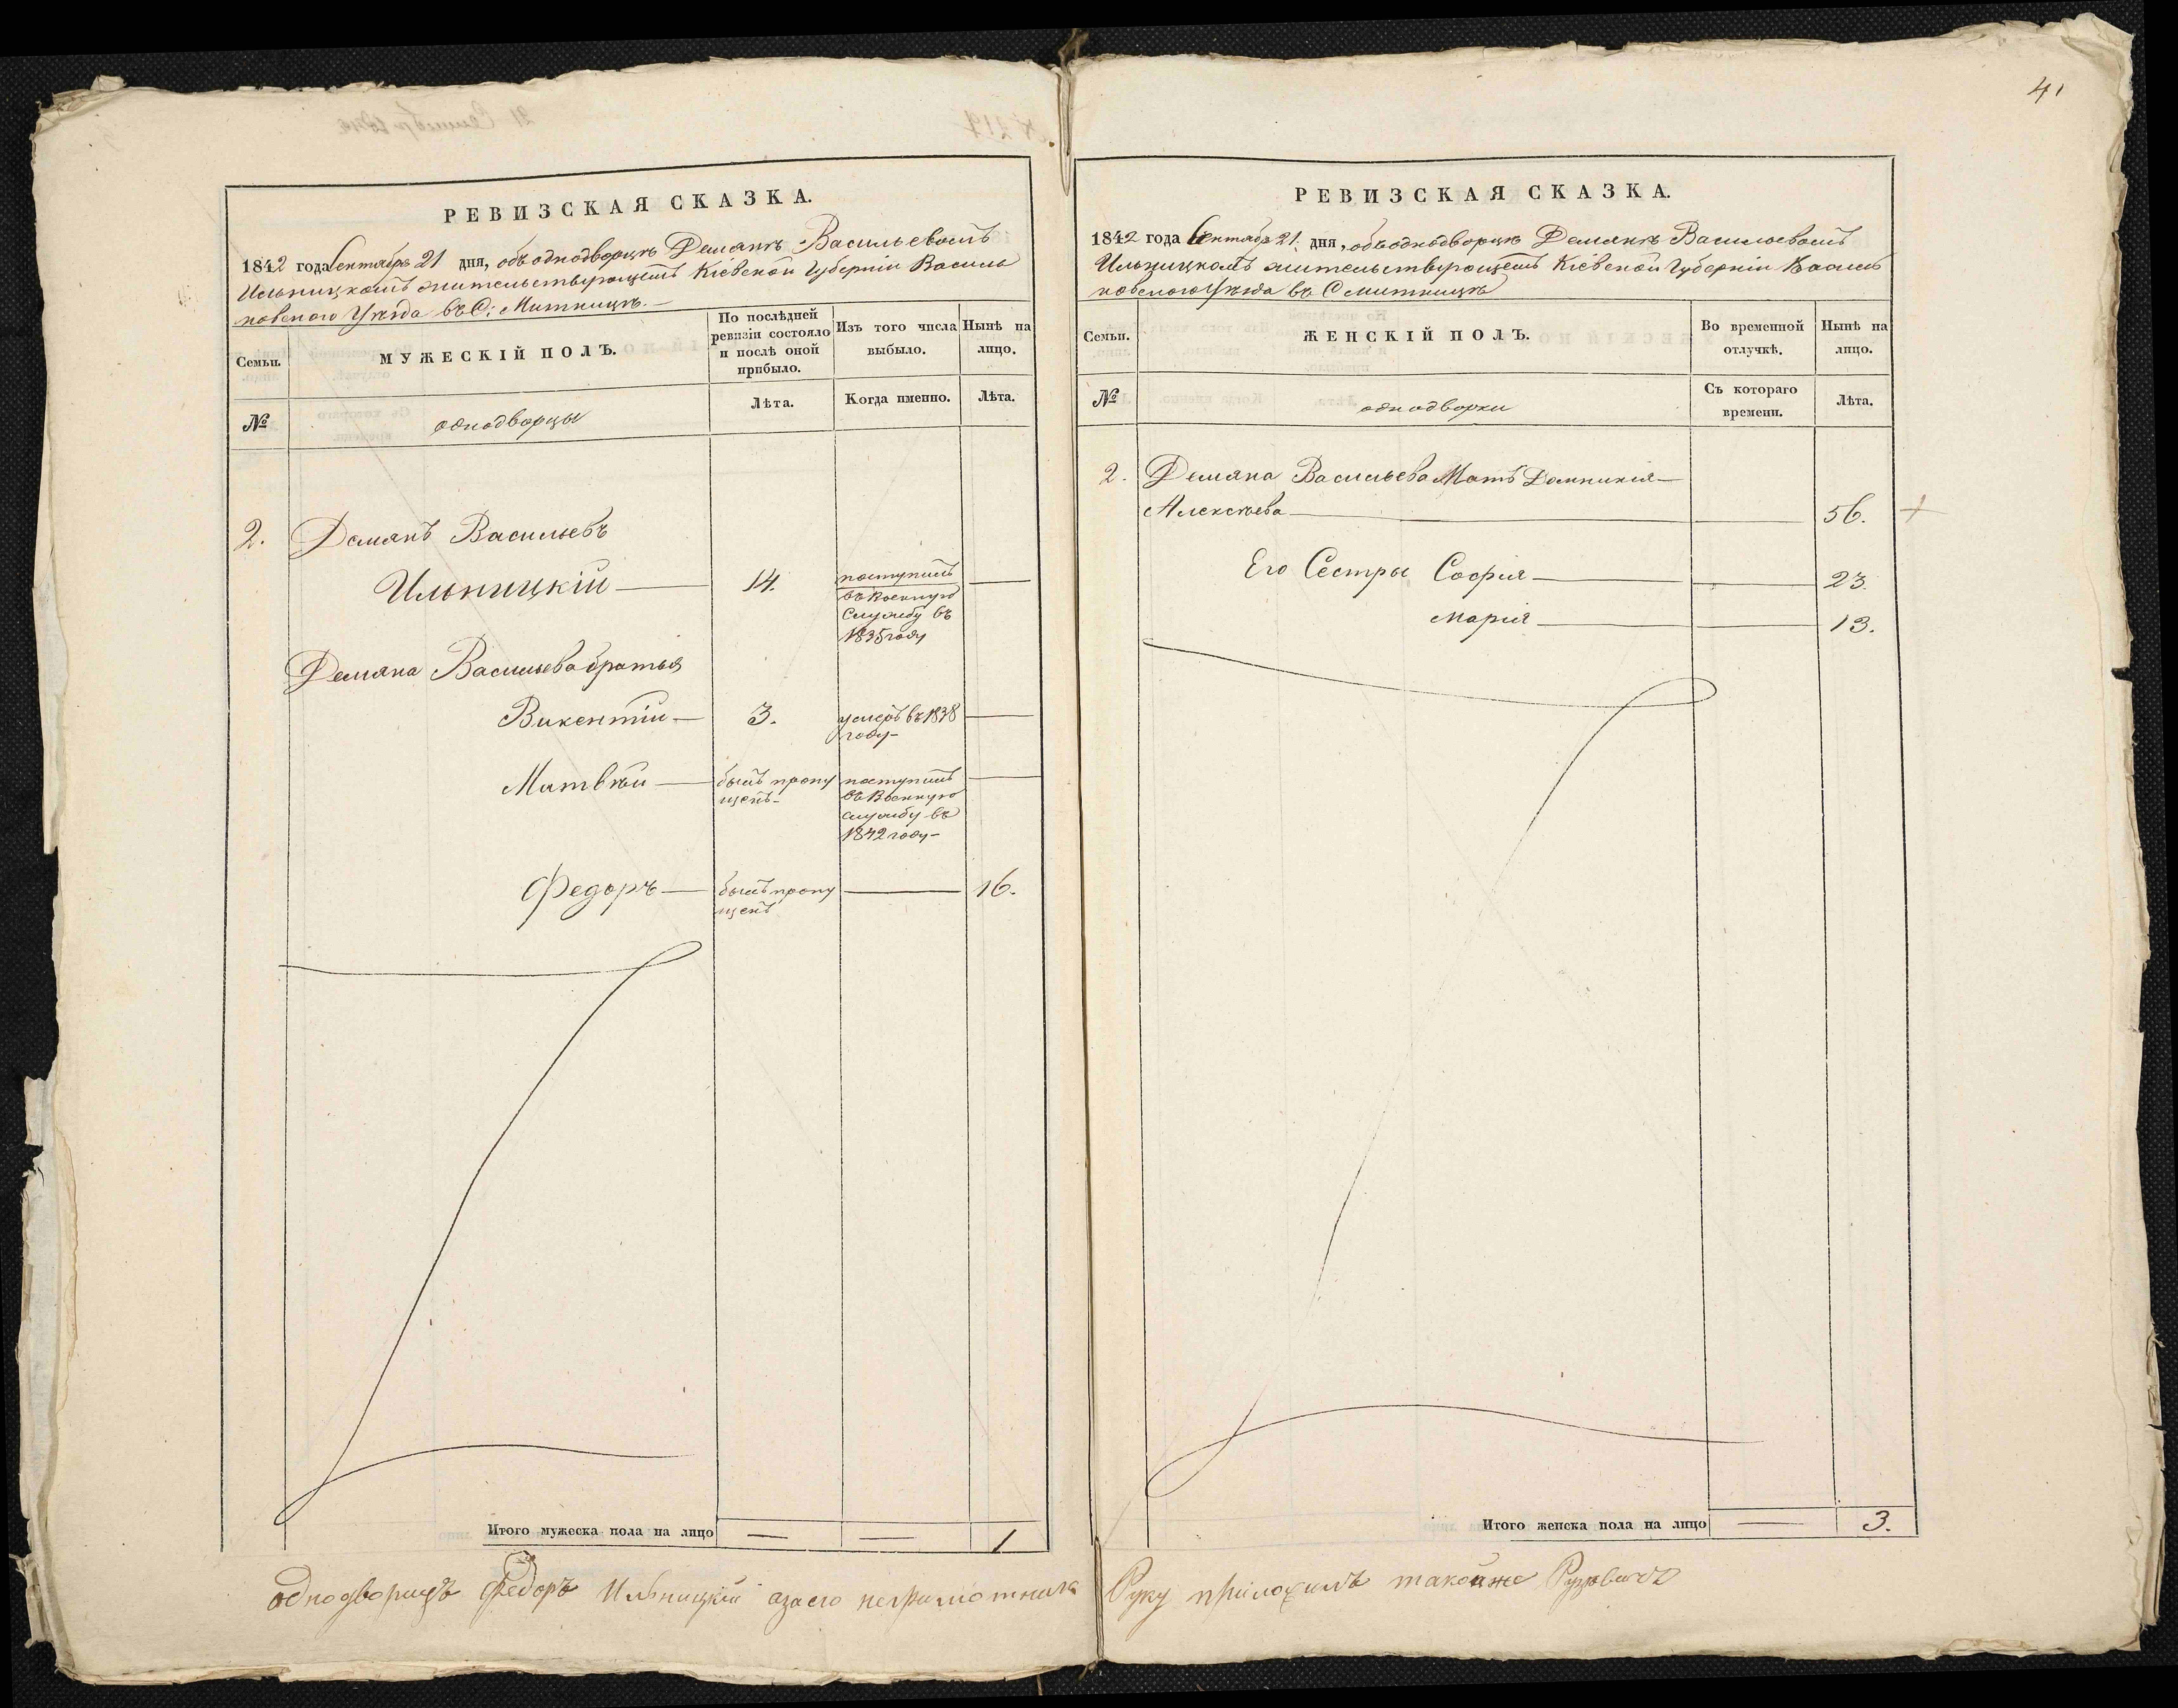 41
РЕВИЗСКАЯ СКАЗКА.
1842 года Сентября 21 дня, объ однодворцѣ Демянѣ Васильевомъ
Ильницкомъ жительствующемъ Кіевской Губерніи Василь
ковского Уѣзда въ С: Митницѣ.
Семьи.
МУЖЕСКІЙ ПОЛЪ.
По послѣдней
ревизіи состояло
и послѣ оной
прибыло.
Изъ того числа
выбыло.
Нынѣ на
лицо.
№
однодворцы
Лѣта.
Когда именно.
Лѣта.
2. Демянъ Васильевъ
Ильницкій — 14. поступилъ —
въ Военную
Службу въ
1835 году
Демяна Васильева братья
Викентій — 3. умеръ въ 1838 —
году —
Матвѣй — былъ пропу поступилъ —
щенъ — въ Военную
службу въ
1842 году —
Федоръ — былъ пропу — 16.
щенъ
Итого мужеска пола на лицо — — 1
однодворецъ Федоръ Ильницкій азаего неграмотнаго
РЕВИЗСКАЯ СКАЗКА.
1842 года Сентября 21. дня, объ однодворцѣ Демянѣ Васильевомъ
Ильницкомъ жительствующемъ Кіевской Губерніи Василь
ковского Уѣзда въ С Митницѣ
Семьи.
ЖЕНСКІЙ ПОЛЪ.
Во временной
отлучкѣ.
Нынѣ на
лицо.
№
однодворки
Съ котораго
времени.
Лѣта.
2. Демяна Васильева Мать Домникия —
Алексѣева — — 56. +
Его Сестры София — — 23.
Мария — — 13.
Итого женска пола на лицо — 3.
Руку приложилъ такойже